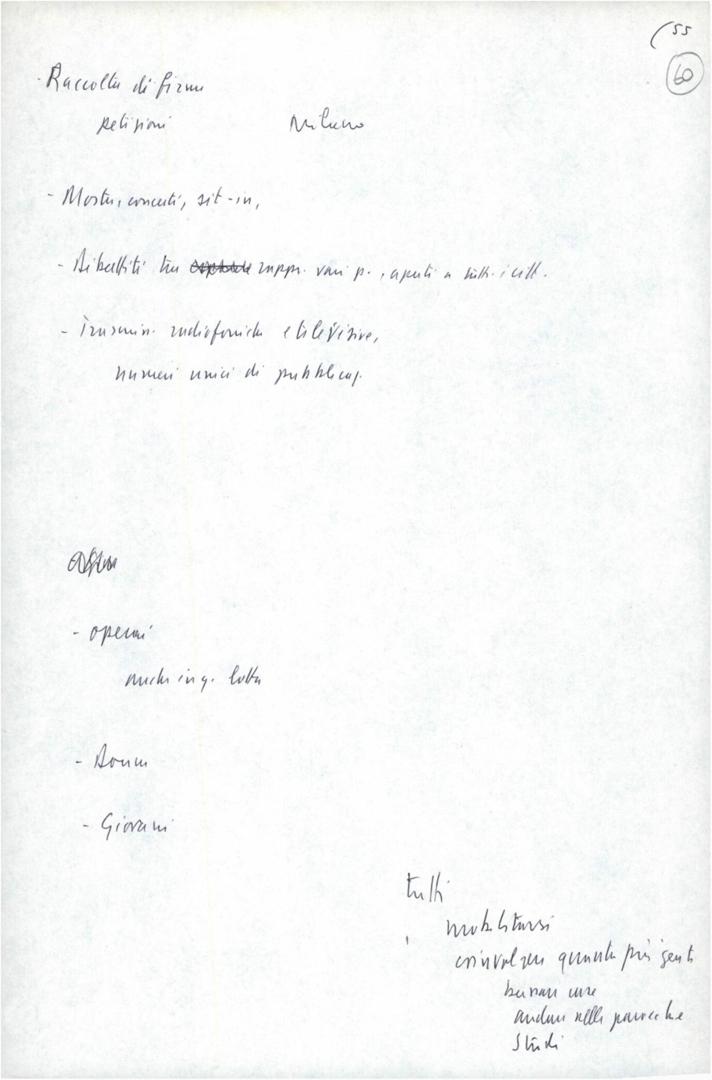 55
60
- Raccolta di firme
petizioni Milano
- Mostre, concerti, sit-in,
- Dibattiti tra rappr. vari p., aperti a tutti i citt.
- Trasmiss. radiofoniche e televisive,
numeri unici di pubblicaz.
- operai
anche in q. lotta
- Donne
- Giovani
tutti
mobilitarsi
coinvolgere quanta più gente
andare nelle parrocchie